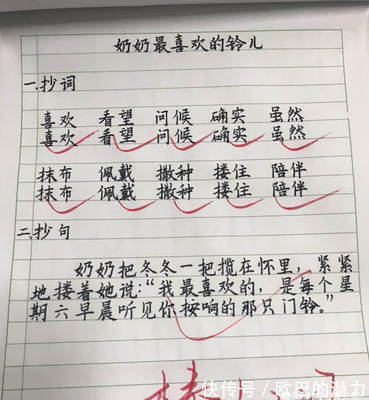 奶奶最喜欢的铃儿
一.抄词
喜欢 看望 问候 确实 虽然
喜欢 看望 问候 确实 虽然
抹布 佩戴 撒种 搂住 陪伴
抹布 佩戴 撒种 搂住 陪伴
二.抄句
奶奶把冬冬一把揽在怀里，紧紧
地搂着她说：“我最喜欢的，是每个星
期六早晨听见你按响的那只门铃。”
快传号／欧巴的潜力